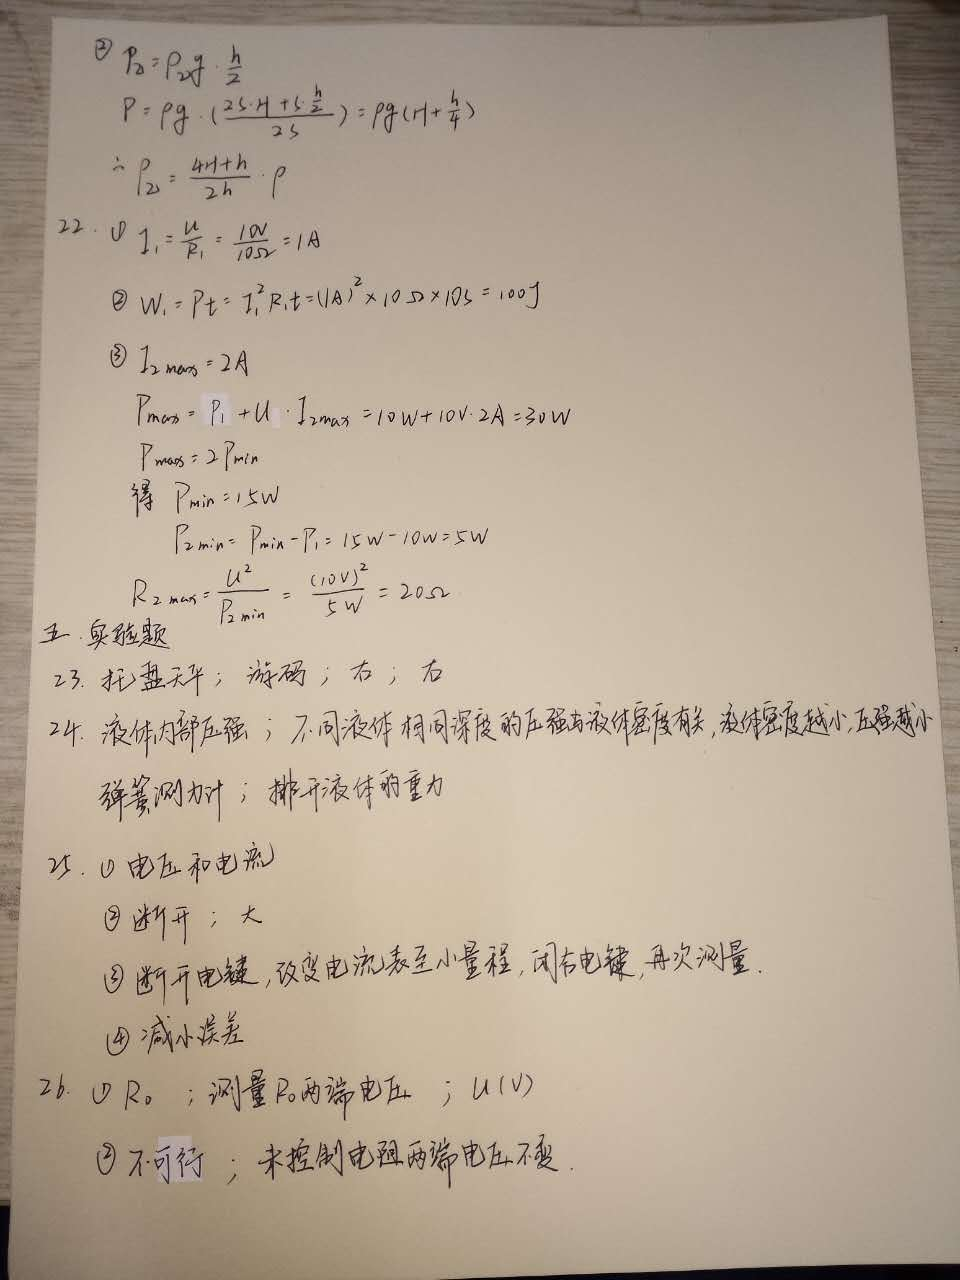 ② P₂=ρ₂g·h/2
P=ρg·((2S·H+S·h/2)/2S)=ρg(H+h/4)
∴ρ₂=(4H+h)/2h·ρ
22. ① I₁=U/R₁=10V/10Ω=1A
② W₁=Pt=I₁²R₁t=(1A)²×10Ω×10s=100J
③ I₂max=2A
Pmax=P₁+U·I₂max=10W+10V·2A=30W
Pmax=2Pmin
得 Pmin=15W
P₂min=Pmin-P₁=15W-10W=5W
R₂max=U²/P₂min=(10V)²/5W=20Ω
五.实验题
23. 托盘天平;游码;右;右
24. 液体内部压强;不同液体相同深度的压强与液体密度有关,液体密度越小,压强越小
弹簧测力计;排开液体的重力
25. ① 电压和电流
② 断开;大
③ 断开电键,改变电流表至小量程,闭合电键,再次测量.
④ 减小误差
26. ① R₀;测量R₀两端电压;U(V)
② 不可行;未控制电阻两端电压不变.